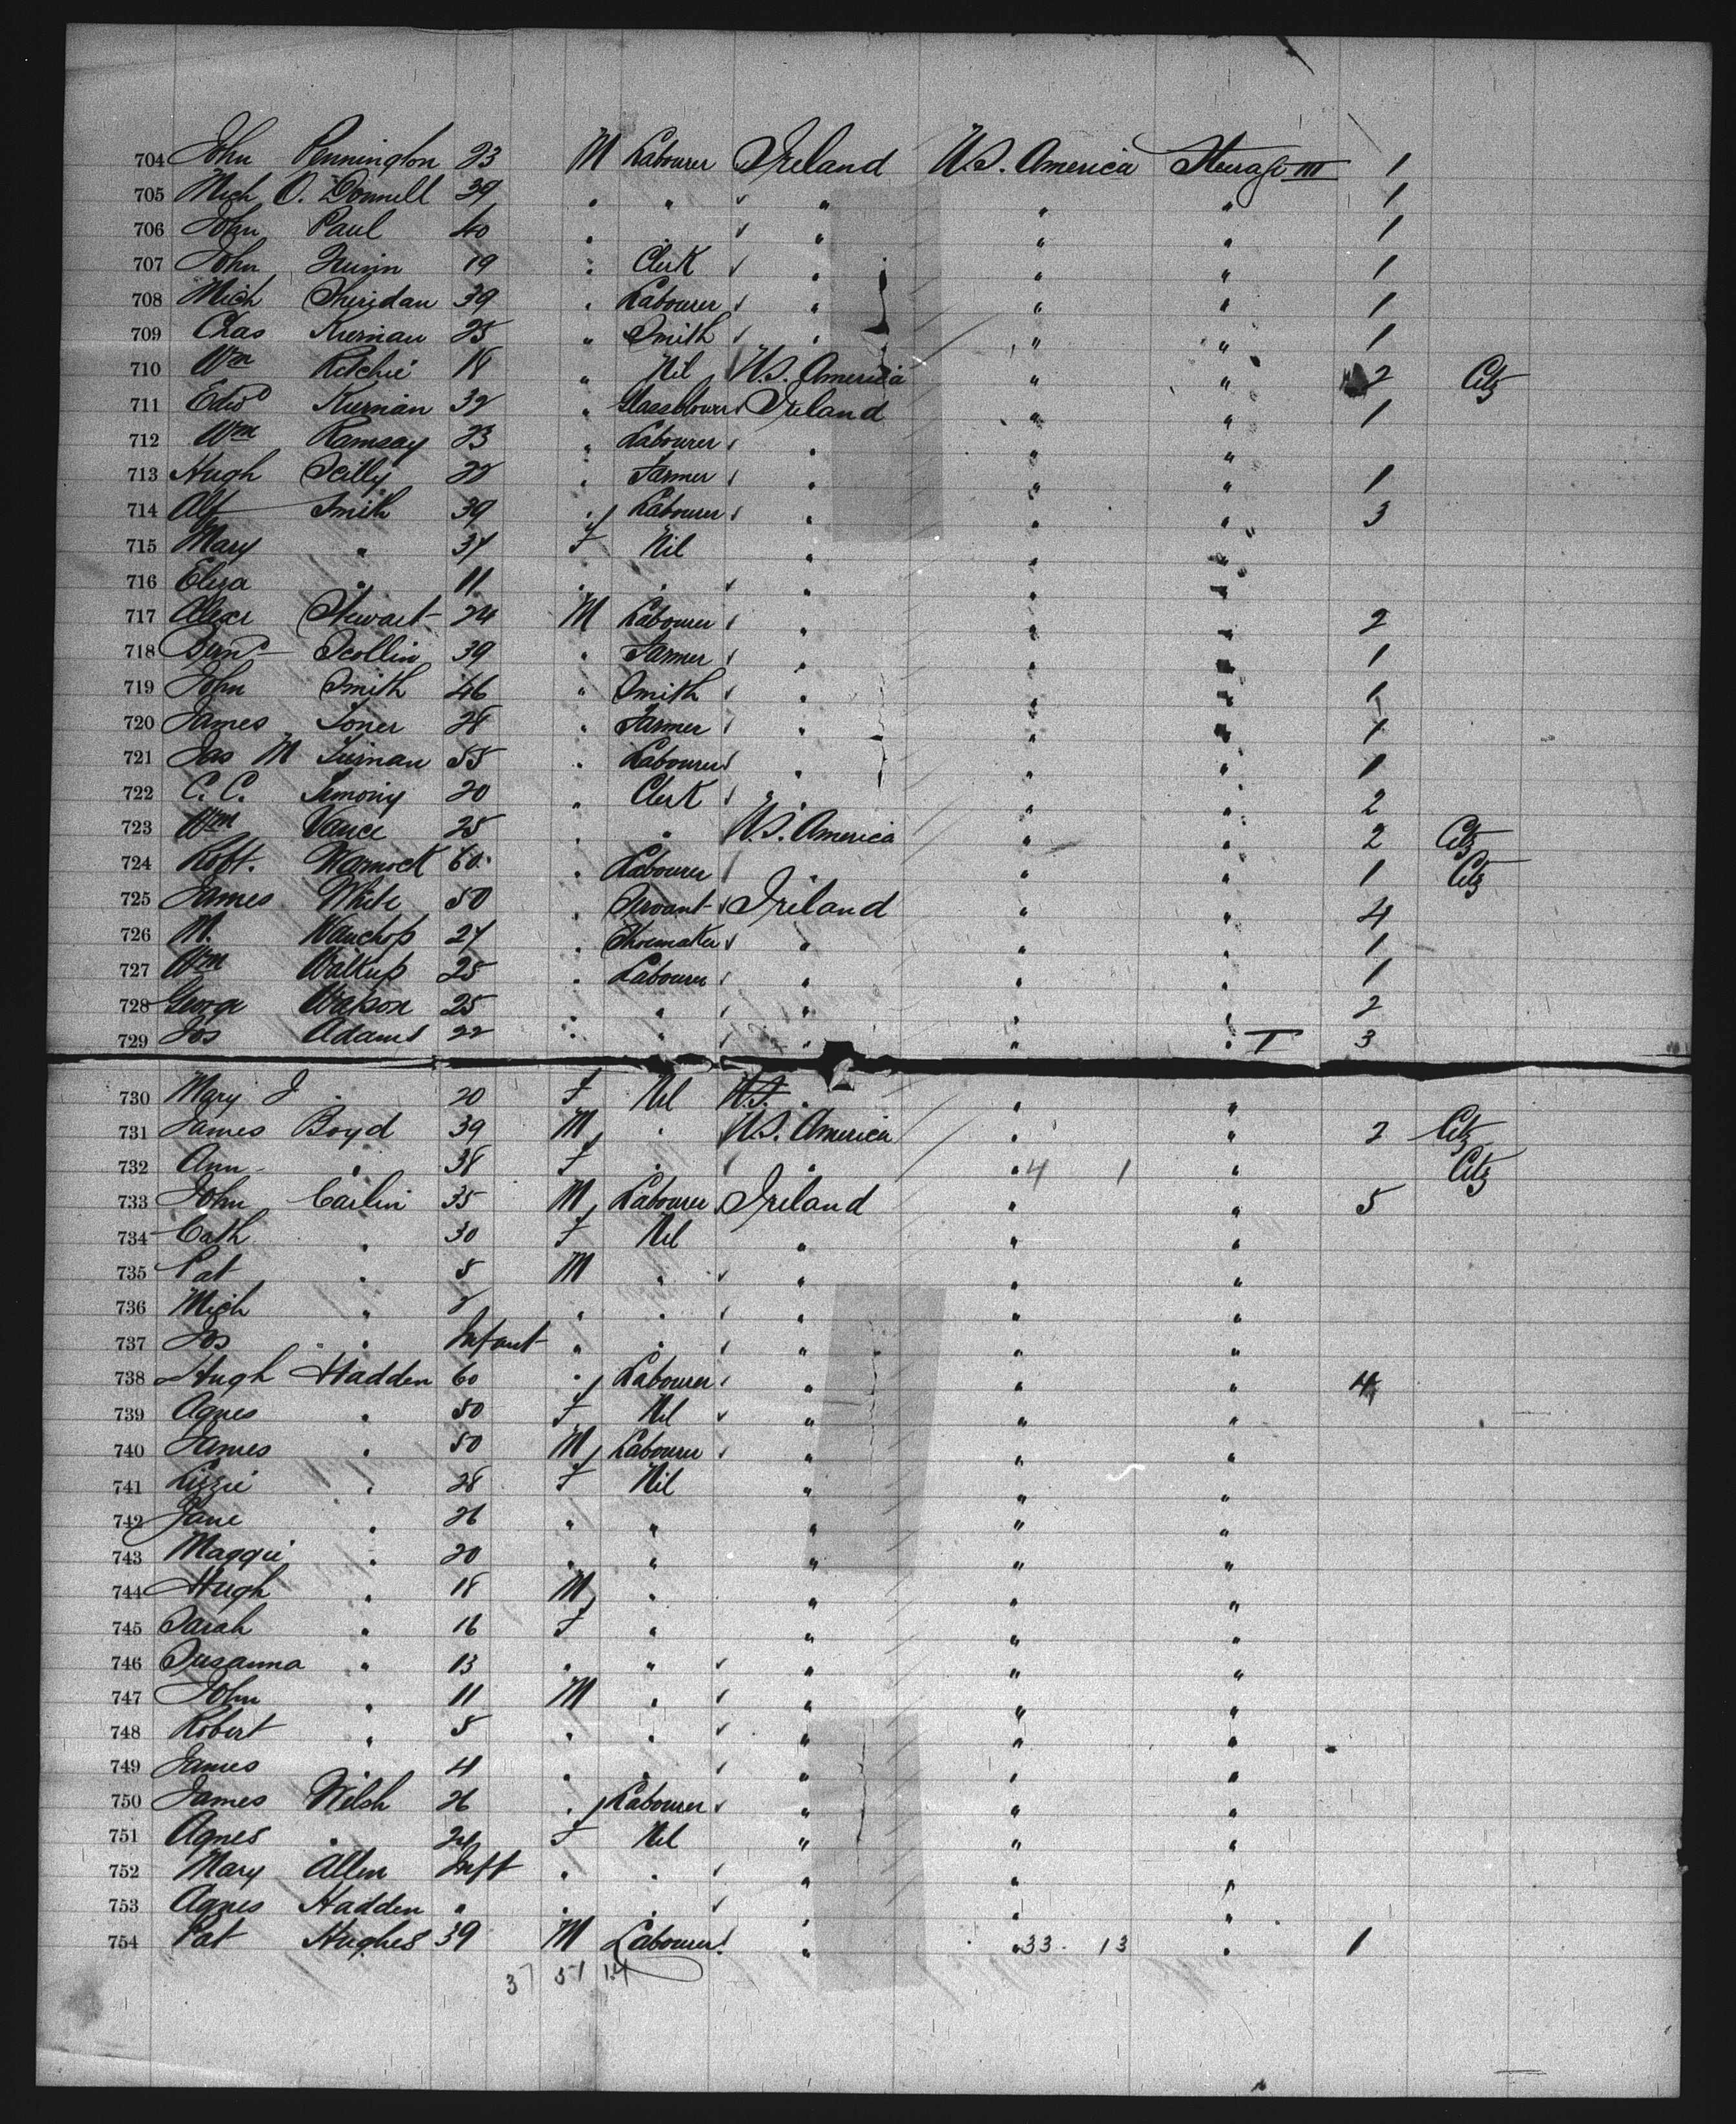 704 John Pennington 23 M Labourer Ireland U.S. America Steerage III 1
705 Mich O. Donnell 39 " " " " " 1
706 John Paul 40 " " " " " 1
707 John Quinn 19 " Clerk " " " 1
708 Mich Sheridan 39 " Labourer " " " 1
709 Chas Kiernan 25 " Smith " " " 1
710 Wm Ritchie 18 " Nil U.S. America " " 2 Citz
711 Edwd Kiernan 32 " Glassblower Ireland " " 1
712 Wm Ramsay 23 " Labourer " " "
713 Hugh Reilly 22 " Farmer " " " 1
714 Alf Smith 39 " Labourer " " " 3
715 Mary " 34 F Nil " " "
716 Eliza " 11 " " " " "
717 Alexr Stewart 24 M Labourer " " " 2
718 Bernd Scollin 39 " Farmer " " " 1
719 John Smith 46 " Smith " " " 1
720 James Toner 28 " Farmer " " " 1
721 Jas M Tiernan 55 " Labourer " " " 1
722 C. C. 20 " Clerk " " " 2
723 Wm Vance 25 " " U.S. America " " 2 Citz
724 Robt. Warnock 60 " Labourer " " " 1 Citz
725 James White 50 " Servant Ireland " " 4
726 M. Wauchop 24 " Shoemaker " " " 1
727 Wm Walkup 25 " Labourer " " " 1
728 George Watson 25 " " " " " 2
729 Jos Adams 22 " " " " " T 3
730 Mary J " 20 F Nil U.S. " " "
731 James Boyd 39 M " U.S. America " " 2 Citz
732 Ann " 38 F " " " 4 1 " Citz
733 John Carlin 35 M Labourer Ireland " " 5
734 Cath " 30 F Nil " " "
735 Pat " 8 M " " " "
736 Mich " " " " " "
737 Jos " Infant " " " " "
738 Hugh Hadden 60 " Labourer " " " 4
739 Agnes " 50 F Nil " " "
740 James " 50 M Labourer " " "
741 Lizzie " 28 F Nil " " "
742 Jane " 26 " " " " "
743 Maggie " 20 " " " " "
744 Hugh " 18 M " " " "
745 Sarah " 16 F " " " "
746 Susanna " 13 " " " " "
747 John " 11 M " " " "
748 Robert " 8 " " " " "
749 James " 4 " " " " "
750 James Welsh 26 " Labourer " " "
751 Agnes " 24 F Nil " " "
752 Mary Allen Inft " " " " "
753 Agnes Hadden " " " " " "
754 Pat Hughes 39 M Labourer " " 33 13 " 1
37 51 14